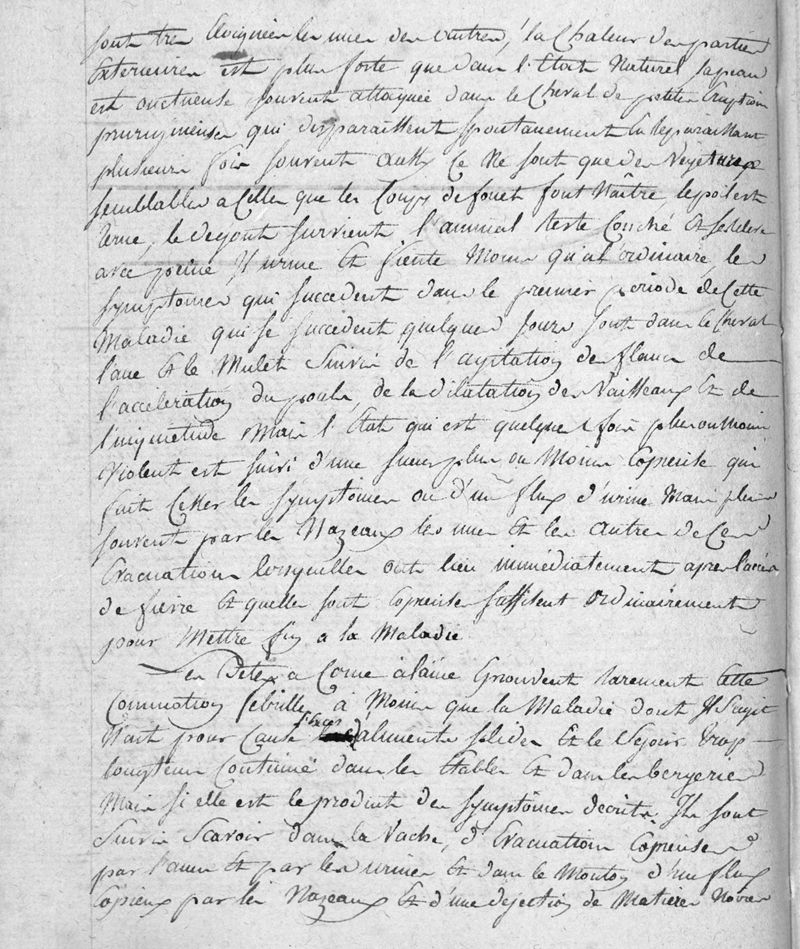 sont tres Eloignée les unes des autres, la Chaleur des parties
Exterieures est plus forte que dans l'Etat Naturel sa peau
est onctueuse souvent attaquée dans le Cheval de petites Eruptions
prurigineuses qui disparaissent spontanement Et reparaissent
plusieurs fois souvent aussy Ce Ne sont que des Vergetures
semblables a Celles que les Coups de fouet font Naître, le poil est
terne, le degout survient l'animal reste Couché Et se releve
avec peine, Il urine Et fiente Moins qu'a l'ordinaire, les
symptomes qui succedent dans le premier periode de Cette
Maladie qui se succedent quelques Jours sont dans le Cheval
l'ane Et le Mulet Suivis de l'agitation des flancs de
l'accéleration du pouls, de la dilatation des Naisseaux Et de
l'inquietude Mais l'Etat qui est quelque fois plus ou Moins
Violent est suivi d'une sueur plus ou Moins Copieuse qui
fait Cesser les symptômes ou d'un flux d'urine Mais plus
souvent par les Nazeaux les unes Et les autres de Ces
Evacuations lorsquelles ont lieu immédiatement apres l'accés
de fievre Et quelle sont Copieuse suffisent Ordinairement
pour Mettre fin a la Maladie
les Betes a Corne à laine Eprouvent rarement Cette
Commotion febrille à Moins que la Maladie dont Il S'agit
N'ait pour Cause l'usage d'aliments solides Et le Sejour Trop
longtems Continué dans les Etables Et dans les bergeries
Mais si elle est le produit des symptômes decrits. Ils sont
Suivis Scavoir dans la Vache, d'Evacuations Copieuses
par l'anus Et par les urines Et dans le Mouton d'un flux
Copieux par les Nazeaux Et d'une dejection de Matieres Noires